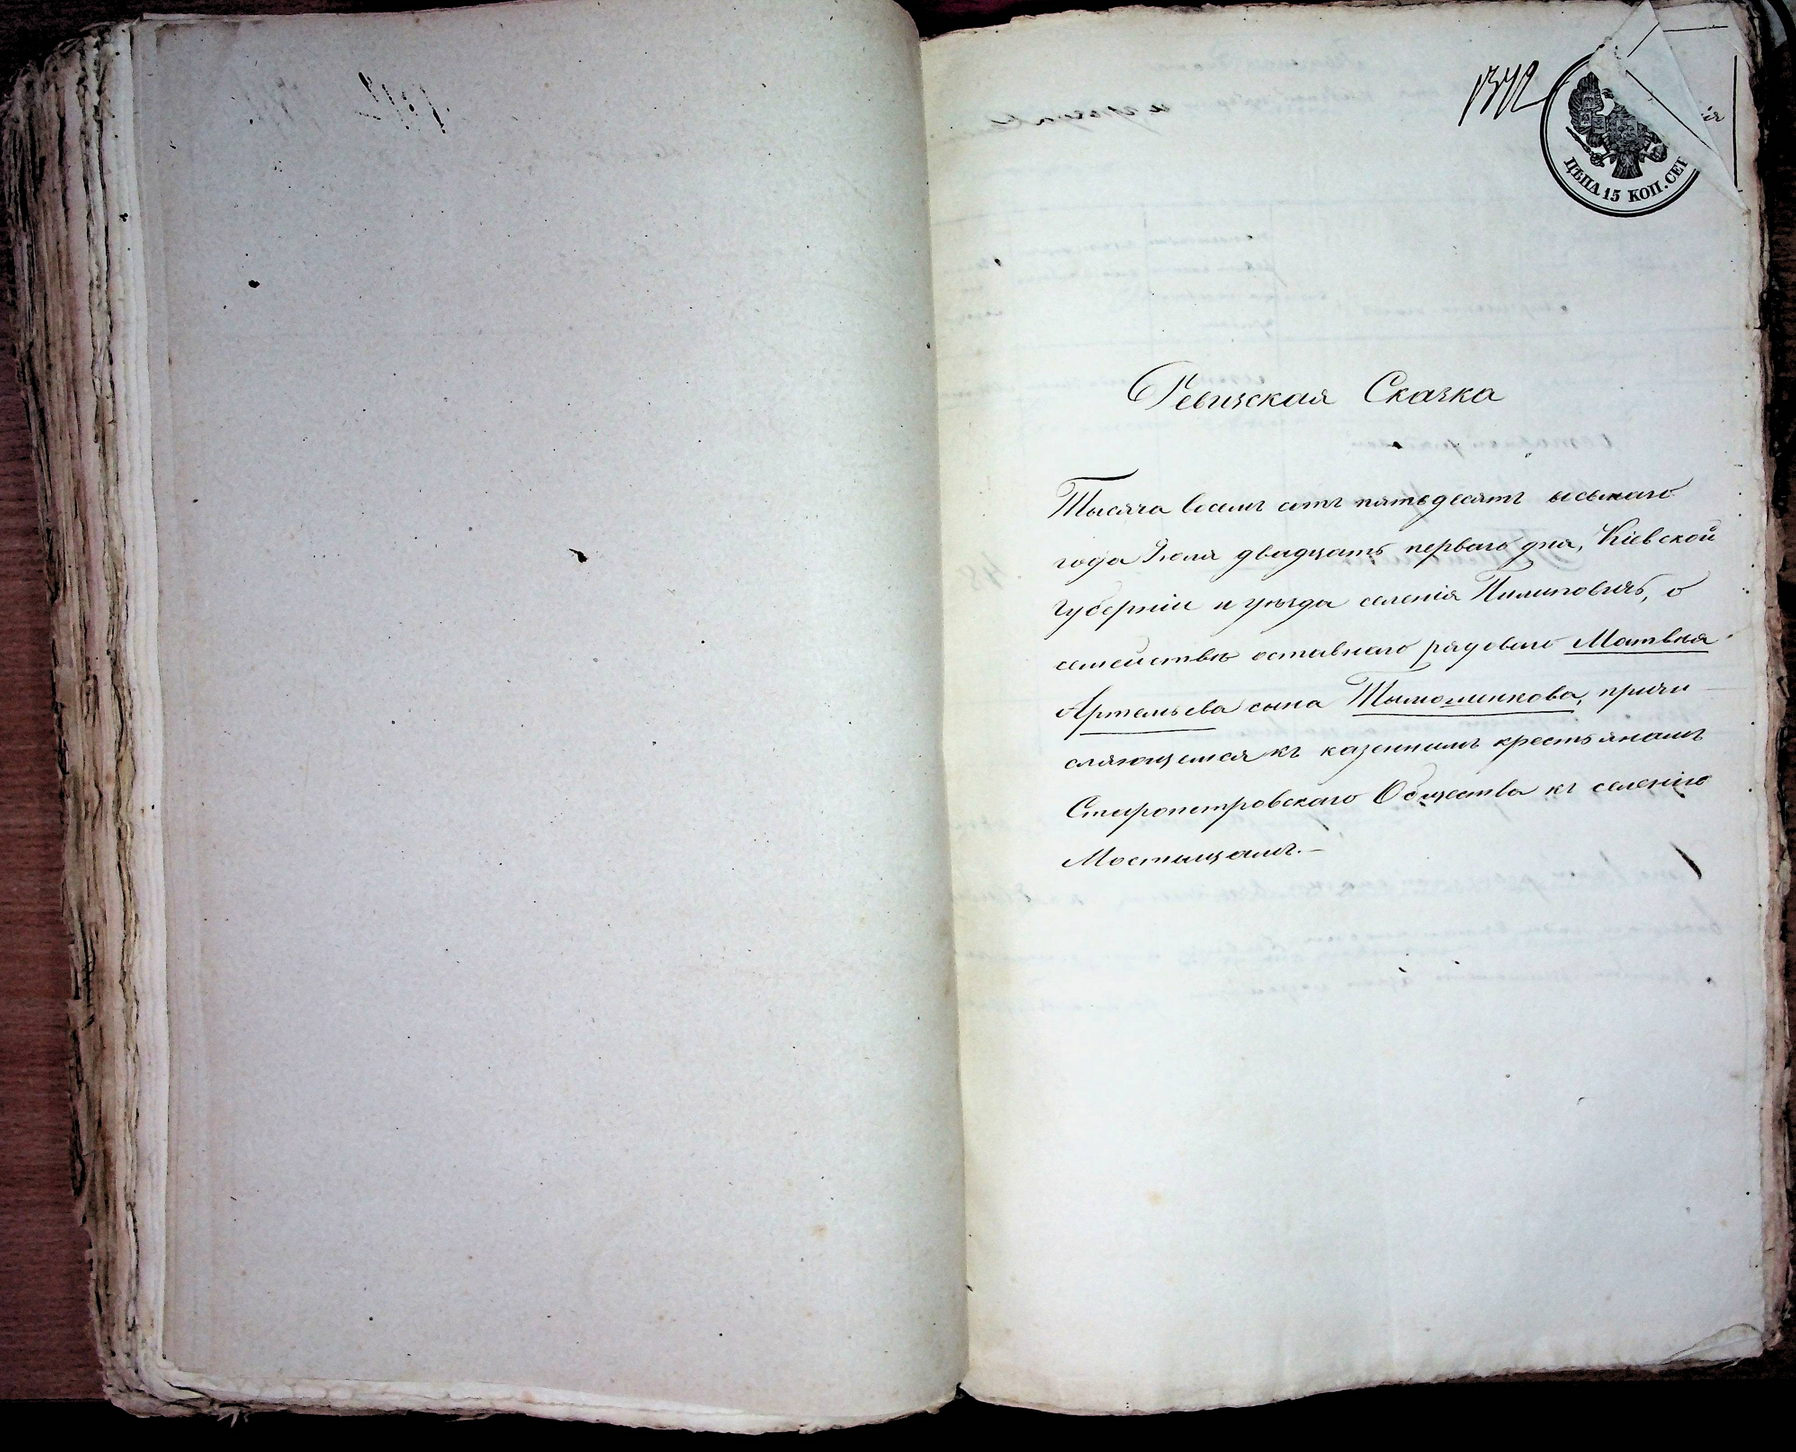 1372
ЦѢНА 15 КОП. СЕР
Ревизская Сказка
Тысяча восемъ сотъ пятьдесятъ восьмаго
года Іюля двадцать перваго дня, Кіевской
Губерніи и уѣзда селенія Пилиповичъ, о
семействѣ отставнаго рядоваго Матвѣя
Артемьева сына Тымошенкова, причи
сляющемся къ казеннымъ крестьянамъ
Старопетровскаго Общества къ селенію
Мостыщамъ.—